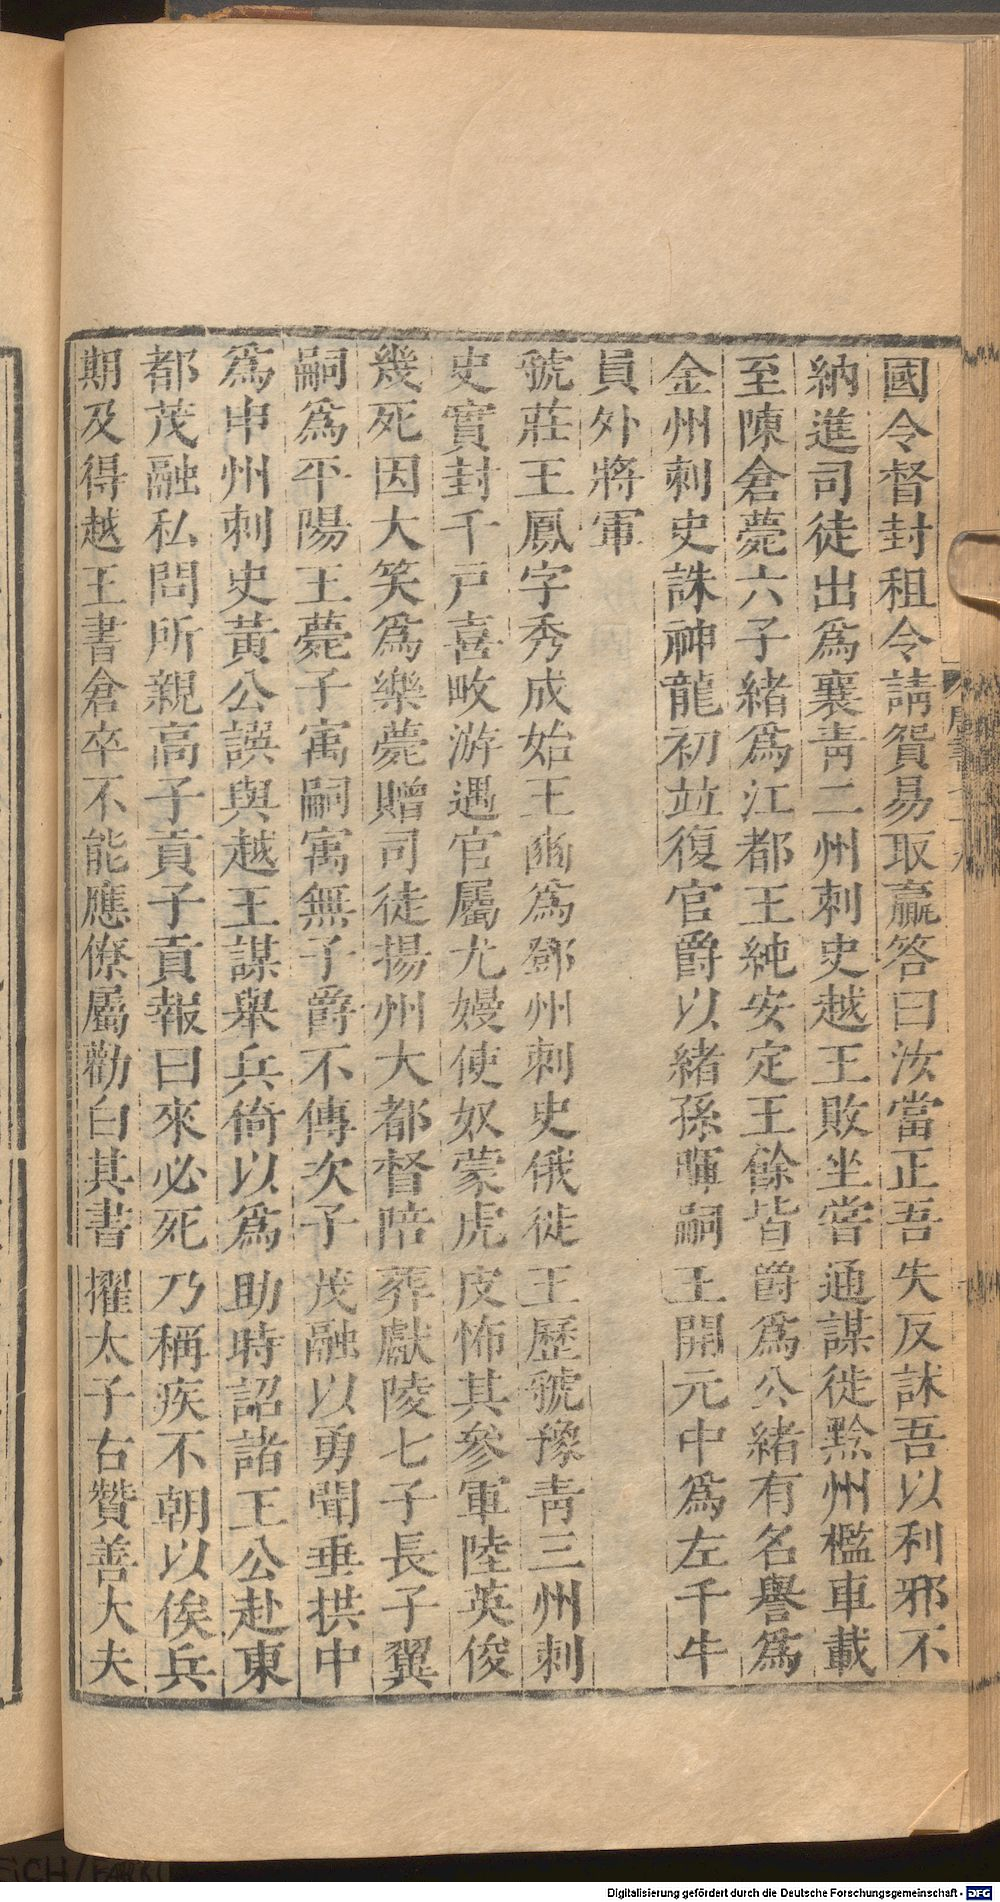 國令督封租令請貿易取贏答曰汝當正吾失反訹吾以利邪不
納進司徒出爲襄靑二州刺史越王敗坐嘗通謀徙黔州檻車載
至陳倉薨六子緒爲江都王純安定王餘皆爵爲公緒有名譽爲
金州刺史誅神龍初竝復官爵以緖孫暉嗣王開元中爲左千牛
員外將軍
虢莊王鳳字秀成始王豳爲鄧州刺史俄徙王歷虢豫靑三州刺
史實封千戸喜畋游遇官屬尤嫚使奴蒙虎皮怖其參軍陸英俊
幾死因大笑爲樂薨贈司徒揚州大都督陪葬獻陵七子長子翼
嗣爲平陽王薨子寓嗣寓無子爵不傳次子茂融以勇聞垂拱中
爲申州刺史黃公譔與越王謀舉兵倚以爲助時詔諸王公赴東
都茂融私問所親高子貢子貢報曰來必死乃稱疾不朝以俟兵
期及得越王書倉卒不能應僚屬勸白其書擢太子右贊善大夫
Digitalisierung gefördert durch die Deutsche Forschungsgemeinschaft - DFG